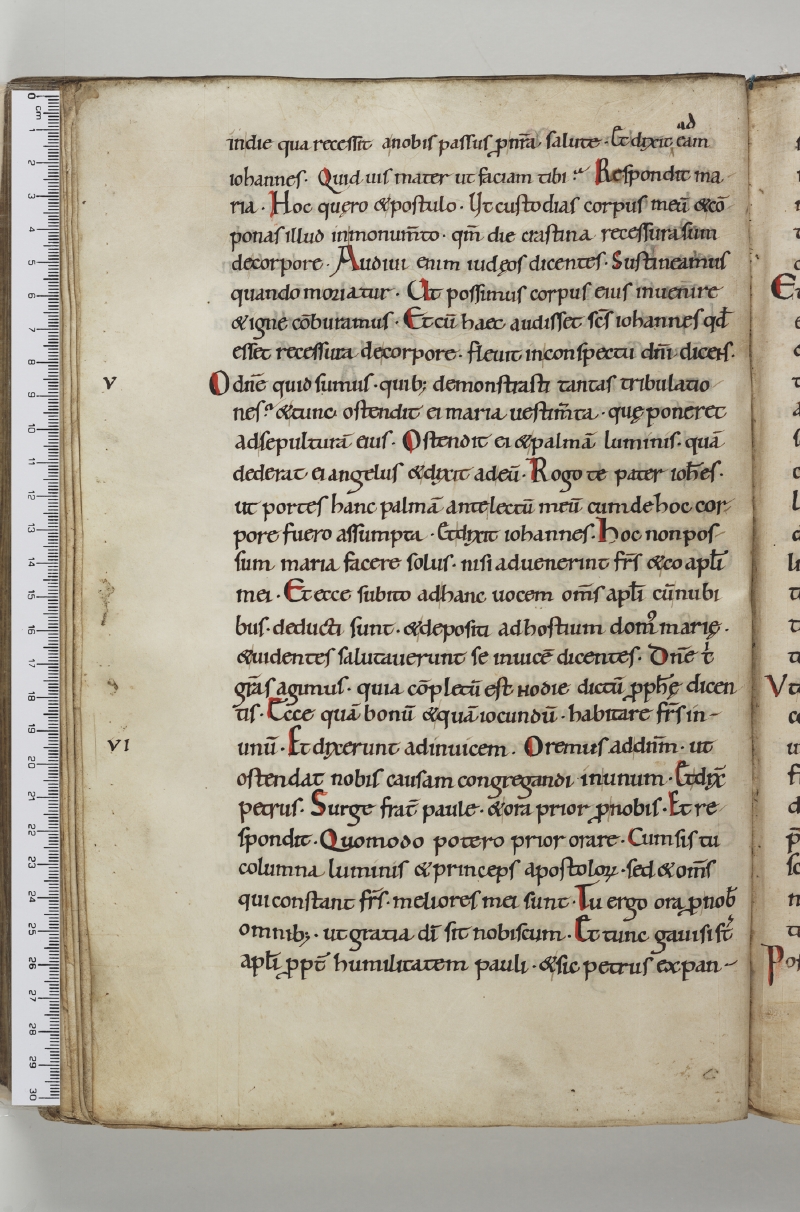 indie qua recessit anobis passus ꝓnr̄a salute · Et dixit ad eam
iohannes · Quid uis mater ut faciam tibi · Respondit ma
ria · Hoc quęro &postulo · Ut custodias corpus meū &cō
ponas illud inmonum̄to · qm̄ die crastina recessura sum
decorpore · Audiui enim iudęos dicentes · Sustineamus
quando moriatur · Ut possimus corpus eius inuenire
&igne cōburamus · Et cū haec audisset sc̄s iohannes qđ
esset recessura decorpore · fleuit inconspectu dn̄i dicens ·
V O dn̄e quid sumus · quib; demonstrasti tantas tribulatio
nes · &tunc ostendit ei maria uestim̄ta · quę poneret
adsepulturā eius · Ostendit ei &palmā luminis · quā
dederat ei angelus &dixit adeū · Rogo te pater ioh̄es ·
ut portes hanc palmā antelectū meū cum de hoc cor
pore fuero assumpta · Et dixit iohannes · Hoc non pos
sum maria facere solus · nisi aduenerint fr̄s &coapl̄i
mei · Et ecce subito adhanc uocem om̄s apl̄i cū nubi
bus · deducti sunt · &depositi adhostium domꝰ marię ·
&uidentes salutauerunt se inuicē dicentes · Dn̄e t̄
gr̄as agimus · quia cōpletū est hodie dictū ꝓph̄ę dicen
tis · Ecce quā bonū &quā iocundū · habitare fr̄s in-
VI unū · Et dixerunt adinuicem · Oremus addn̄m · ut
ostendat nobis causam congregandi inunum · Et dix̄
petrus · Surge frat̄ paule · &ora prior ꝓnobis · Et re
spondit · Quomodo potero prior orare · Cum sis tu
columna luminis &princeps apostoloꝝ · sed &om̄s
qui constant fr̄s · meliores mei sunt · Tu ergo ora ꝓnob̄
omnib; · ut gratia dī sit nobiscum · Et tunc gauisi st̄
apl̄i ꝓpt̄ humilitatem pauli · &sic petrus expan-